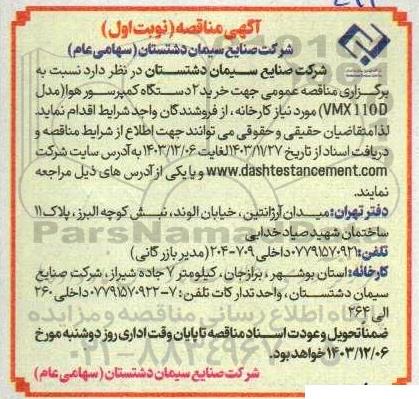 آگهی مناقصه (نوبت اول)
شرکت صنایع سیمان دشتستان (سهامی عام)
شرکت صنایع سیمان دشتستان در نظر دارد نسبت به
برگزاری مناقصه عمومی جهت خرید ۲ دستگاه کمپرسور هوا (مدل
VMX 110 D) مورد نیاز کارخانه، از فروشندگان واجد شرایط اقدام نماید.
لذا متقاضیان حقیقی و حقوقی می توانند جهت اطلاع از شرایط مناقصه و
دریافت اسناد از تاریخ ۱۴۰۳/۱۱/۲۷ لغایت ۱۴۰۳/۱۲/۰۶ به آدرس سایت شرکت
www.dashtestancement.com و یا یکی از آدرس های ذیل مراجعه
نمایند.
دفتر تهران: میدان آرژانتین، خیابان الوند، نبش کوچه البرز، پلاک ۱۱
ساختمان شهید صیاد خدایی
تلفن: ۰۷۷۹۱۵۷۰۹۲۱ داخلی ۷۰۹-۲۰۴ (مدیر بازرگانی)
کارخانه: استان بوشهر، برازجان، کیلومتر ۷ جاده شیراز، شرکت صنایع
سیمان دشتستان، واحد تدارکات تلفن: ۷-۰۷۷۹۱۵۷۰۹۲۳ داخلی ۲۶۰
الی ۲۶۴
ضمنا تحویل و عودت اسناد مناقصه تا پایان وقت اداری روز دوشنبه مورخ
۱۴۰۳/۱۲/۰۶ خواهد بود.
شرکت صنایع سیمان دشتستان (سهامی عام)